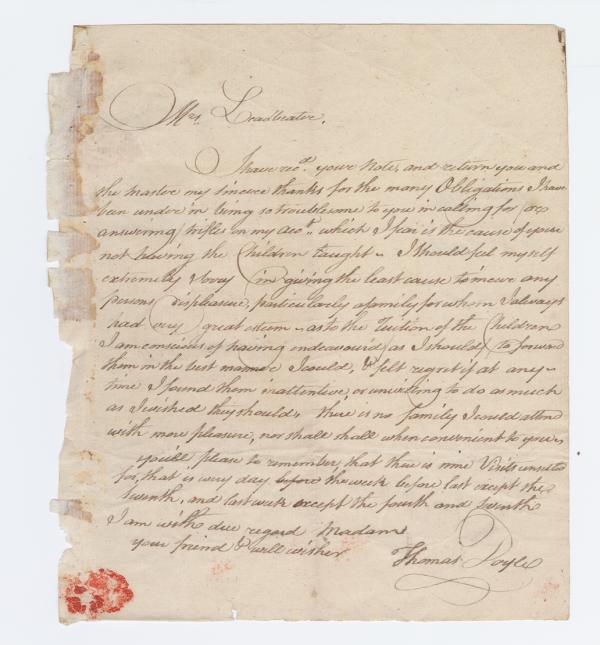 Mrs. Leadbeater.
I have recd. your Note, and return you and
the Master my sincere thanks for the many Obligations I have
been under in being so troublesome to you in calling for or
answering trifles on my acct. which I fear is the cause of your
not having the Children taught. I should feel myself
extremely sorry in giving the least cause to incur any
persons displeasure, particularly a family for whom I always
had very great esteem as to the Tuition of the Children
I am conscious of having endeavour'd as I should to forward
them in the best manner I could, & felt regret if at any
time I found them inattentive or unwilling to do as much
as I wished they should, there is no family I could attend
with more pleasure, nor shall shall when convenient to you
youll please to remember that there is nine Visits
for, that is every day before the week before last except the
seventh, and last week except the fourth and seventh
I am with due regard Madam
your friend & well wisher
Thomas Doyle